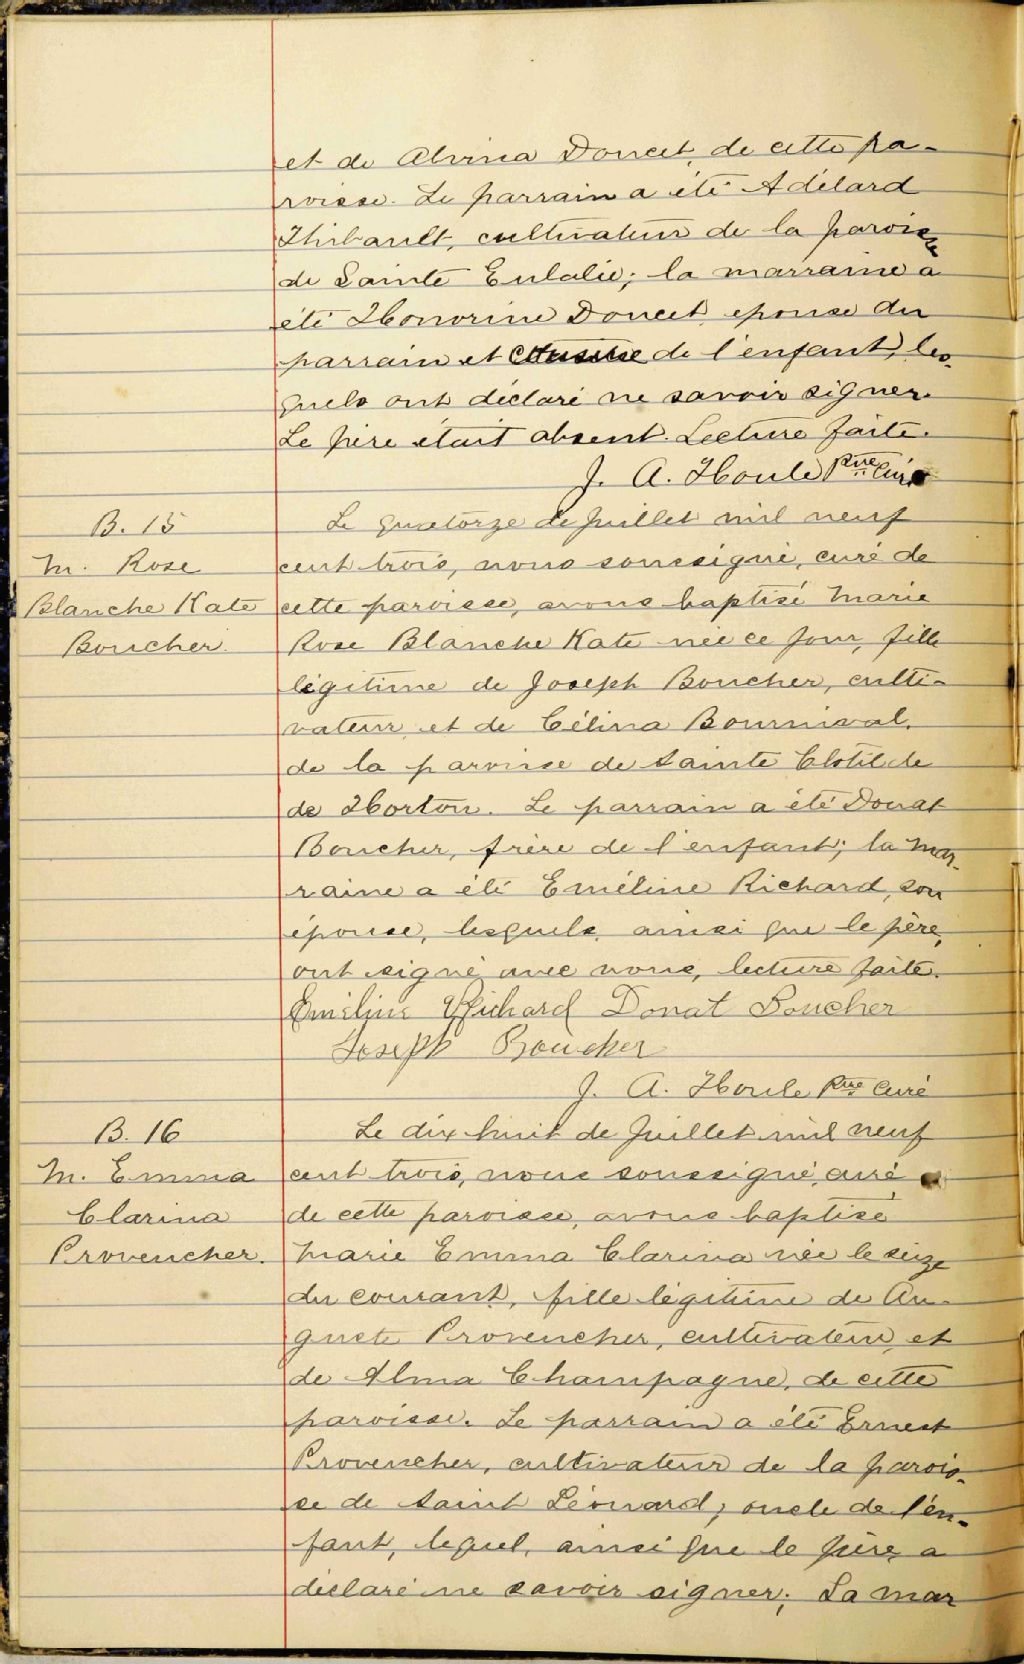 et de Alvina Doucet, de cette pa-
roisse. Le parrain a été Adélard
Thibault, cultivateur de la paroisse
de Sainte Eulalie; la marraine a
été Honorine Doucet, epouse du
parrain et cousine de l'enfant, les-
quels ont déclaré ne savoir signer.
Le père était absent. Lecture faite.
J. A. Houle Ptre Curé
B. 15
M. Rose
Blanche Kate
Boucher.
Le quatorze de Juillet mil neuf
cent trois, nous soussigné, curé de
cette paroisse, avons baptisé Marie
Rose Blanche Kate née ce jour, fille
légitime de Joseph Boucher, culti-
vateur, et de Célina Bournival,
de la paroisse de Sainte Clotilde
de Horton. Le parrain a été Donat
Boucher, frère de l'enfant; la mar-
raine a été Eméline Richard, son
épouse, lesquels, ainsi que le père,
ont signé avec nous, lecture faite.
Eméline Richard Donat Boucher
Joseph Boucher
J. A. Houle Ptre Curé
B. 16
M. Emma
Clarina
Provencher.
Le dix huit de Juillet mil neuf
cent trois, nous soussigné, curé
de cette paroisse, avons baptisé
Marie Emma Clarina née le seize
du courant, fille légitime de Au-
guste Provencher, cultivateur, et
de Alma Champagne, de cette
paroisse. Le parrain a été Ernest
Provencher, cultivateur de la parois-
se de Saint Léonard, oncle de l'en-
fant, lequel, ainsi que le père, a
déclaré ne savoir signer; La mar